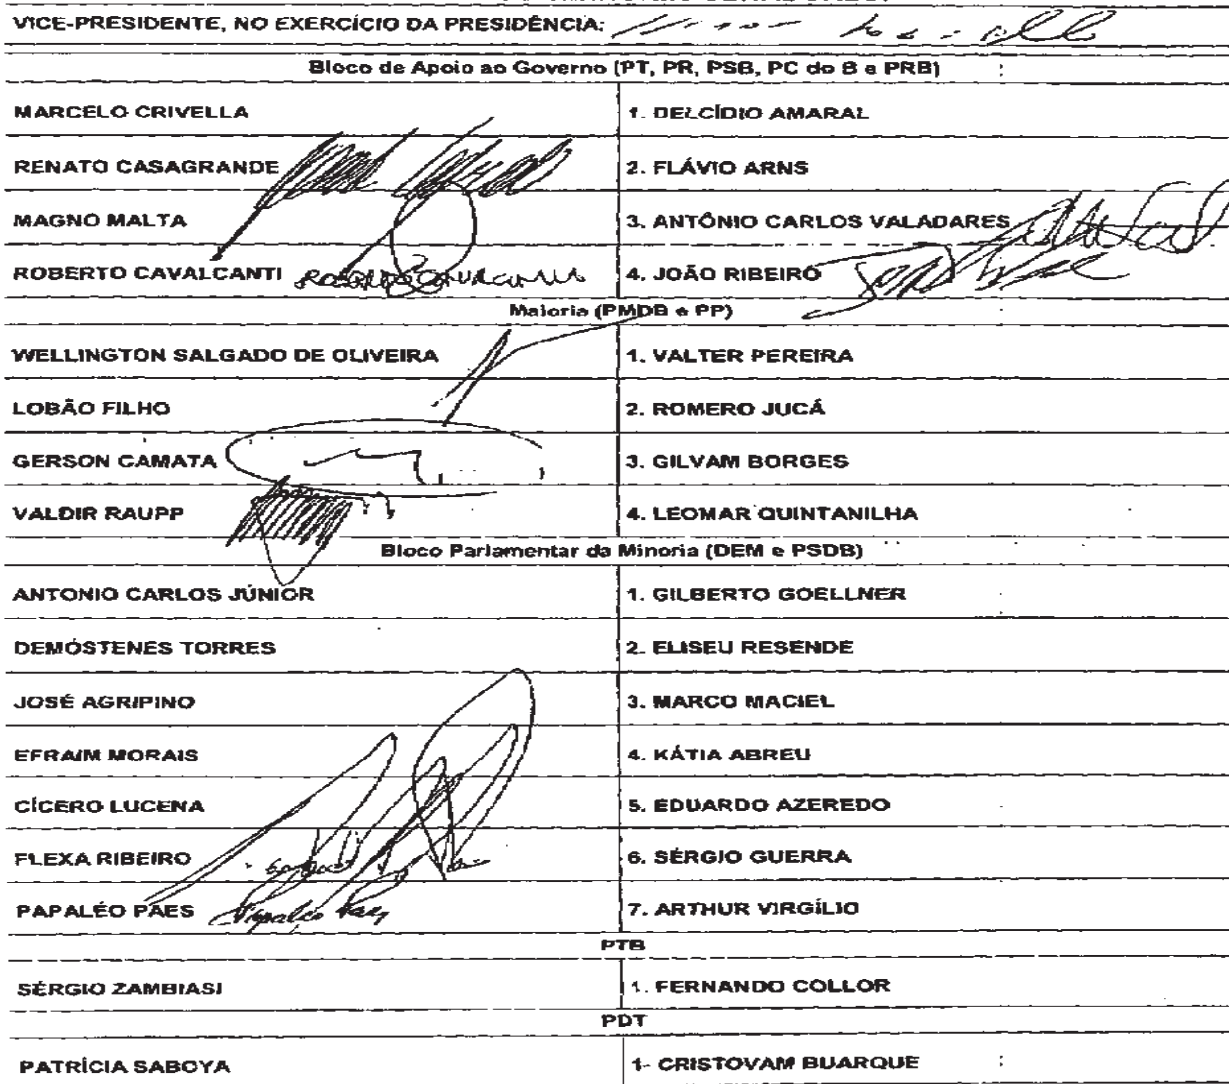 VICE-PRESIDENTE, NO EXERCÍCIO DA PRESIDÊNCIA:
Bloco de Apoio ao Governo (PT, PR, PSB, PC do B e PRB)
MARCELO CRIVELLA 1. DELCÍDIO AMARAL
RENATO CASAGRANDE 2. FLÁVIO ARNS
MAGNO MALTA 3. ANTÔNIO CARLOS VALADARES
ROBERTO CAVALCANTI Roberto Cavalcanti 4. JOÃO RIBEIRO
Maioria (PMDB e PP)
WELLINGTON SALGADO DE OLIVEIRA 1. VALTER PEREIRA
LOBÃO FILHO 2. ROMERO JUCÁ
GERSON CAMATA 3. GILVAM BORGES
VALDIR RAUPP 4. LEOMAR QUINTANILHA
Bloco Parlamentar da Minoria (DEM e PSDB)
ANTONIO CARLOS JÚNIOR 1. GILBERTO GOELLNER
DEMÓSTENES TORRES 2. ELISEU RESENDE
JOSÉ AGRIPINO 3. MARCO MACIEL
EFRAIM MORAIS 4. KÁTIA ABREU
CÍCERO LUCENA 5. EDUARDO AZEREDO
FLEXA RIBEIRO 6. SÉRGIO GUERRA
PAPALÉO PAES Papaléo Paes 7. ARTHUR VIRGÍLIO
PTB
SÉRGIO ZAMBIASI 1. FERNANDO COLLOR
PDT
PATRÍCIA SABOYA 1- CRISTOVAM BUARQUE